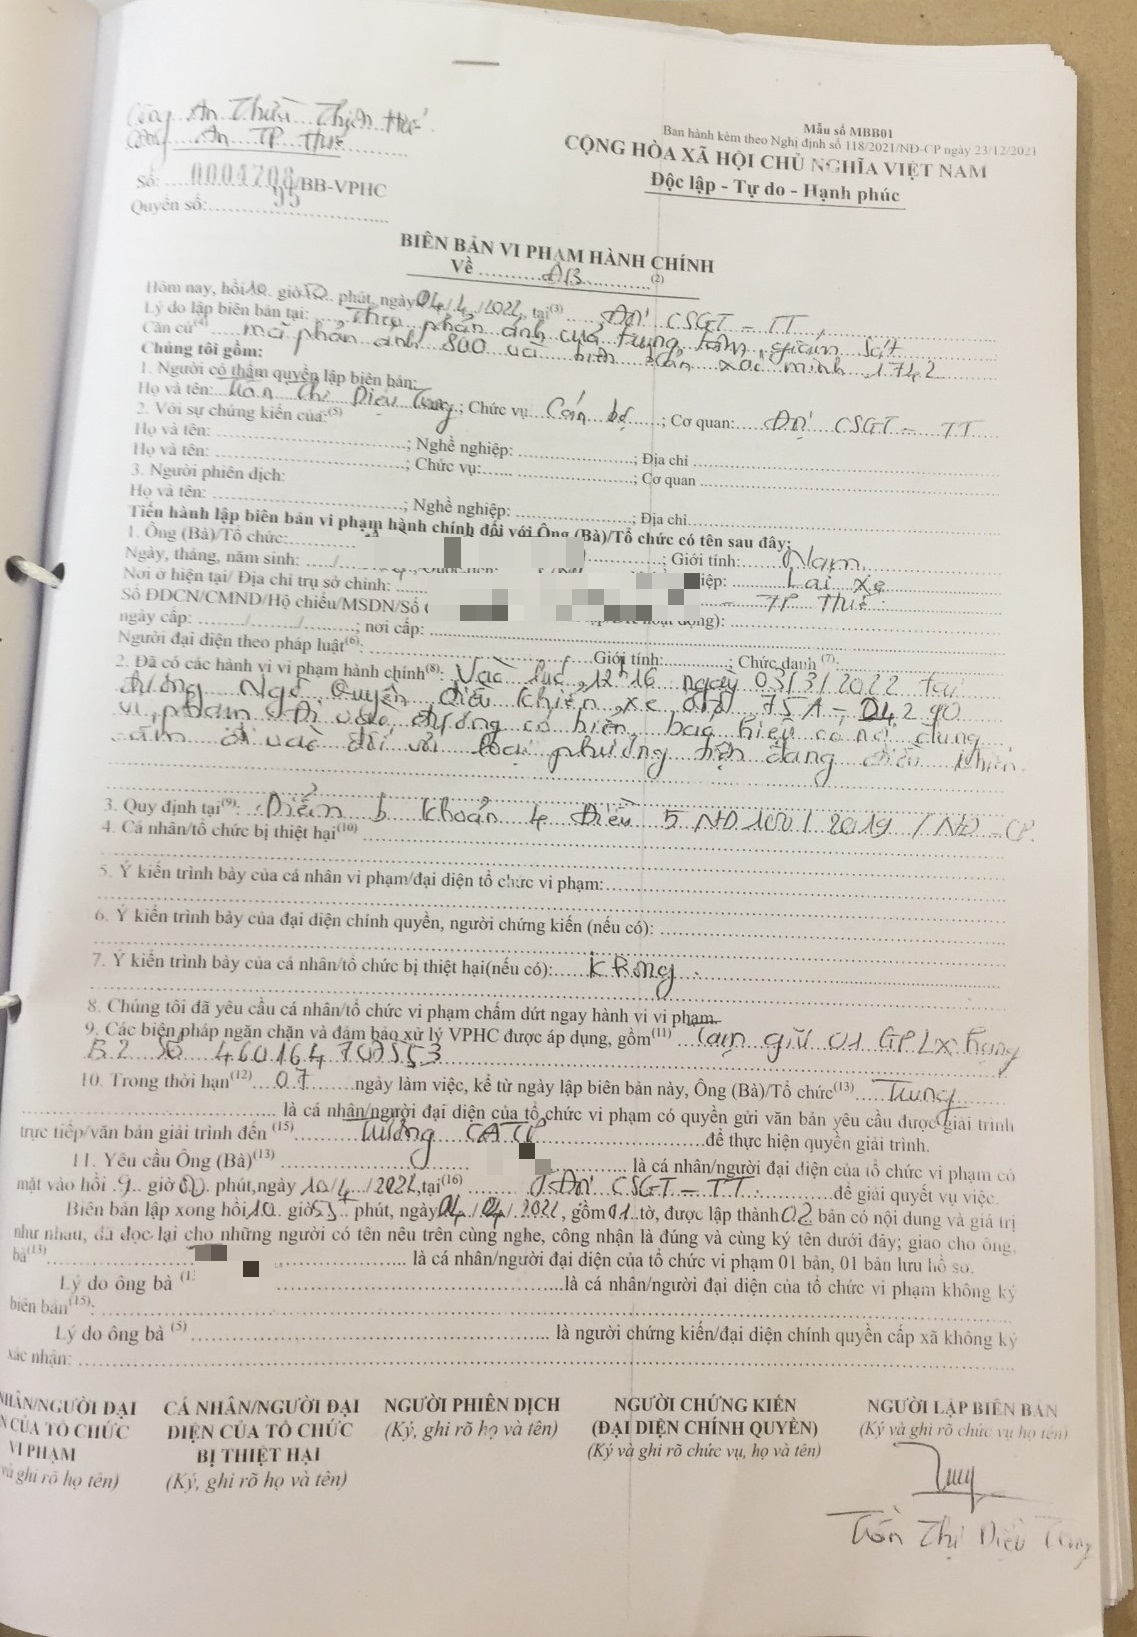 Công An Thừa Thiên Huế
Công An TP Huế
Mẫu số MBB01
Ban hành kèm theo Nghị định số 118/2021/NĐ-CP ngày 23/12/2021
CỘNG HÒA XÃ HỘI CHỦ NGHĨA VIỆT NAM
Độc lập - Tự do - Hạnh phúc
Số: 0004708/BB-VPHC
95
Quyển số:
BIÊN BẢN VI PHẠM HÀNH CHÍNH
Về ĐB (2)
Hôm nay, hồi 10 giờ 50 phút, ngày 04/4/2022, tại(3) Đội CSGT - TT
Lý do lập biên bản tại: Theo phản ánh của trung tâm giám sát
Căn cứ(4) mã phản ánh 800 và biên bản xác minh 1742
Chúng tôi gồm:
1. Người có thẩm quyền lập biên bản:
Họ và tên: Trần Thị Diệu Trang; Chức vụ Cán bộ; Cơ quan: Đội CSGT - TT
2. Với sự chứng kiến của:(5)
Họ và tên: ; Nghề nghiệp: ; Địa chỉ
Họ và tên: ; Chức vụ: ; Cơ quan
3. Người phiên dịch:
Họ và tên: ; Nghề nghiệp: ; Địa chỉ
Tiến hành lập biên bản vi phạm hành chính đối với Ông (Bà)/Tổ chức có tên sau đây:
1. Ông (Bà)/Tổ chức: ; Giới tính: Nam
Ngày, tháng, năm sinh: / Lái xe
Nơi ở hiện tại/ Địa chỉ trụ sở chính: - TP Huế
Số ĐDCN/CMND/Hộ chiếu/MSDN/Số
ngày cấp: / / ; nơi cấp:
Người đại diện theo pháp luật(6): Giới tính: ; Chức danh (7):
2. Đã có các hành vi vi phạm hành chính(8): Vào lúc 12h16 ngày 03/3/2022 tại
đường Ngô Quyền điều khiển xe ôtô 75A - 04290
vi phạm: Đi vào đường có biển báo hiệu có nội dung
cấm đi vào đối với loại phương tiện đang điều khiển.
3. Quy định tại(9): Điểm b khoản 4 Điều 5 NĐ 100/2019/NĐ-CP.
4. Cá nhân/tổ chức bị thiệt hại(10)
5. Ý kiến trình bày của cá nhân vi phạm/đại diện tổ chức vi phạm:
6. Ý kiến trình bày của đại diện chính quyền, người chứng kiến (nếu có):
7. Ý kiến trình bày của cá nhân/tổ chức bị thiệt hại(nếu có): Không.
8. Chúng tôi đã yêu cầu cá nhân/tổ chức vi phạm chấm dứt ngay hành vi vi phạm.
9. Các biện pháp ngăn chặn và đảm bảo xử lý VPHC được áp dụng, gồm(11) Tạm giữ 01 GPLX hạng
B2 Số 460164700553
10. Trong thời hạn(12) 07 ngày làm việc, kể từ ngày lập biên bản này, Ông (Bà)/Tổ chức(13) Trung
là cá nhân/người đại diện của tổ chức vi phạm có quyền gửi văn bản yêu cầu được giải trình
trực tiếp/văn bản giải trình đến (15) Trưởng CATP để thực hiện quyền giải trình.
11. Yêu cầu Ông (Bà)(13) là cá nhân/người đại diện của tổ chức vi phạm có
mặt vào hồi 9 giờ 00 phút,ngày 10/4/2022,tại(16) Đội CSGT - TT để giải quyết vụ việc.
Biên bản lập xong hồi 10 giờ 55 phút, ngày 04/04/2022, gồm 01 tờ, được lập thành 02 bản có nội dung và giá trị
như nhau, đã đọc lại cho những người có tên nêu trên cùng nghe, công nhận là đúng và cùng ký tên dưới đây; giao cho ông,
bà(13) là cá nhân/người đại diện của tổ chức vi phạm 01 bản, 01 bản lưu hồ sơ.
Lý do ông bà là cá nhân/người đại diện của tổ chức vi phạm không ký
biên bản(15):
Lý do ông bà (5) là người chứng kiến/đại diện chính quyền cấp xã không ký
xác nhận:
NHÂN/NGƯỜI ĐẠI
N CỦA TỔ CHỨC
VI PHẠM
và ghi rõ họ tên)
CÁ NHÂN/NGƯỜI ĐẠI
DIỆN CỦA TỔ CHỨC
BỊ THIỆT HẠI
(Ký, ghi rõ họ và tên)
NGƯỜI PHIÊN DỊCH
(Ký, ghi rõ họ và tên)
NGƯỜI CHỨNG KIẾN
(ĐẠI DIỆN CHÍNH QUYỀN)
(Ký và ghi rõ chức vụ, họ và tên)
NGƯỜI LẬP BIÊN BẢN
(Ký và ghi rõ chức vụ họ tên)
Trần Thị Diệu Trang